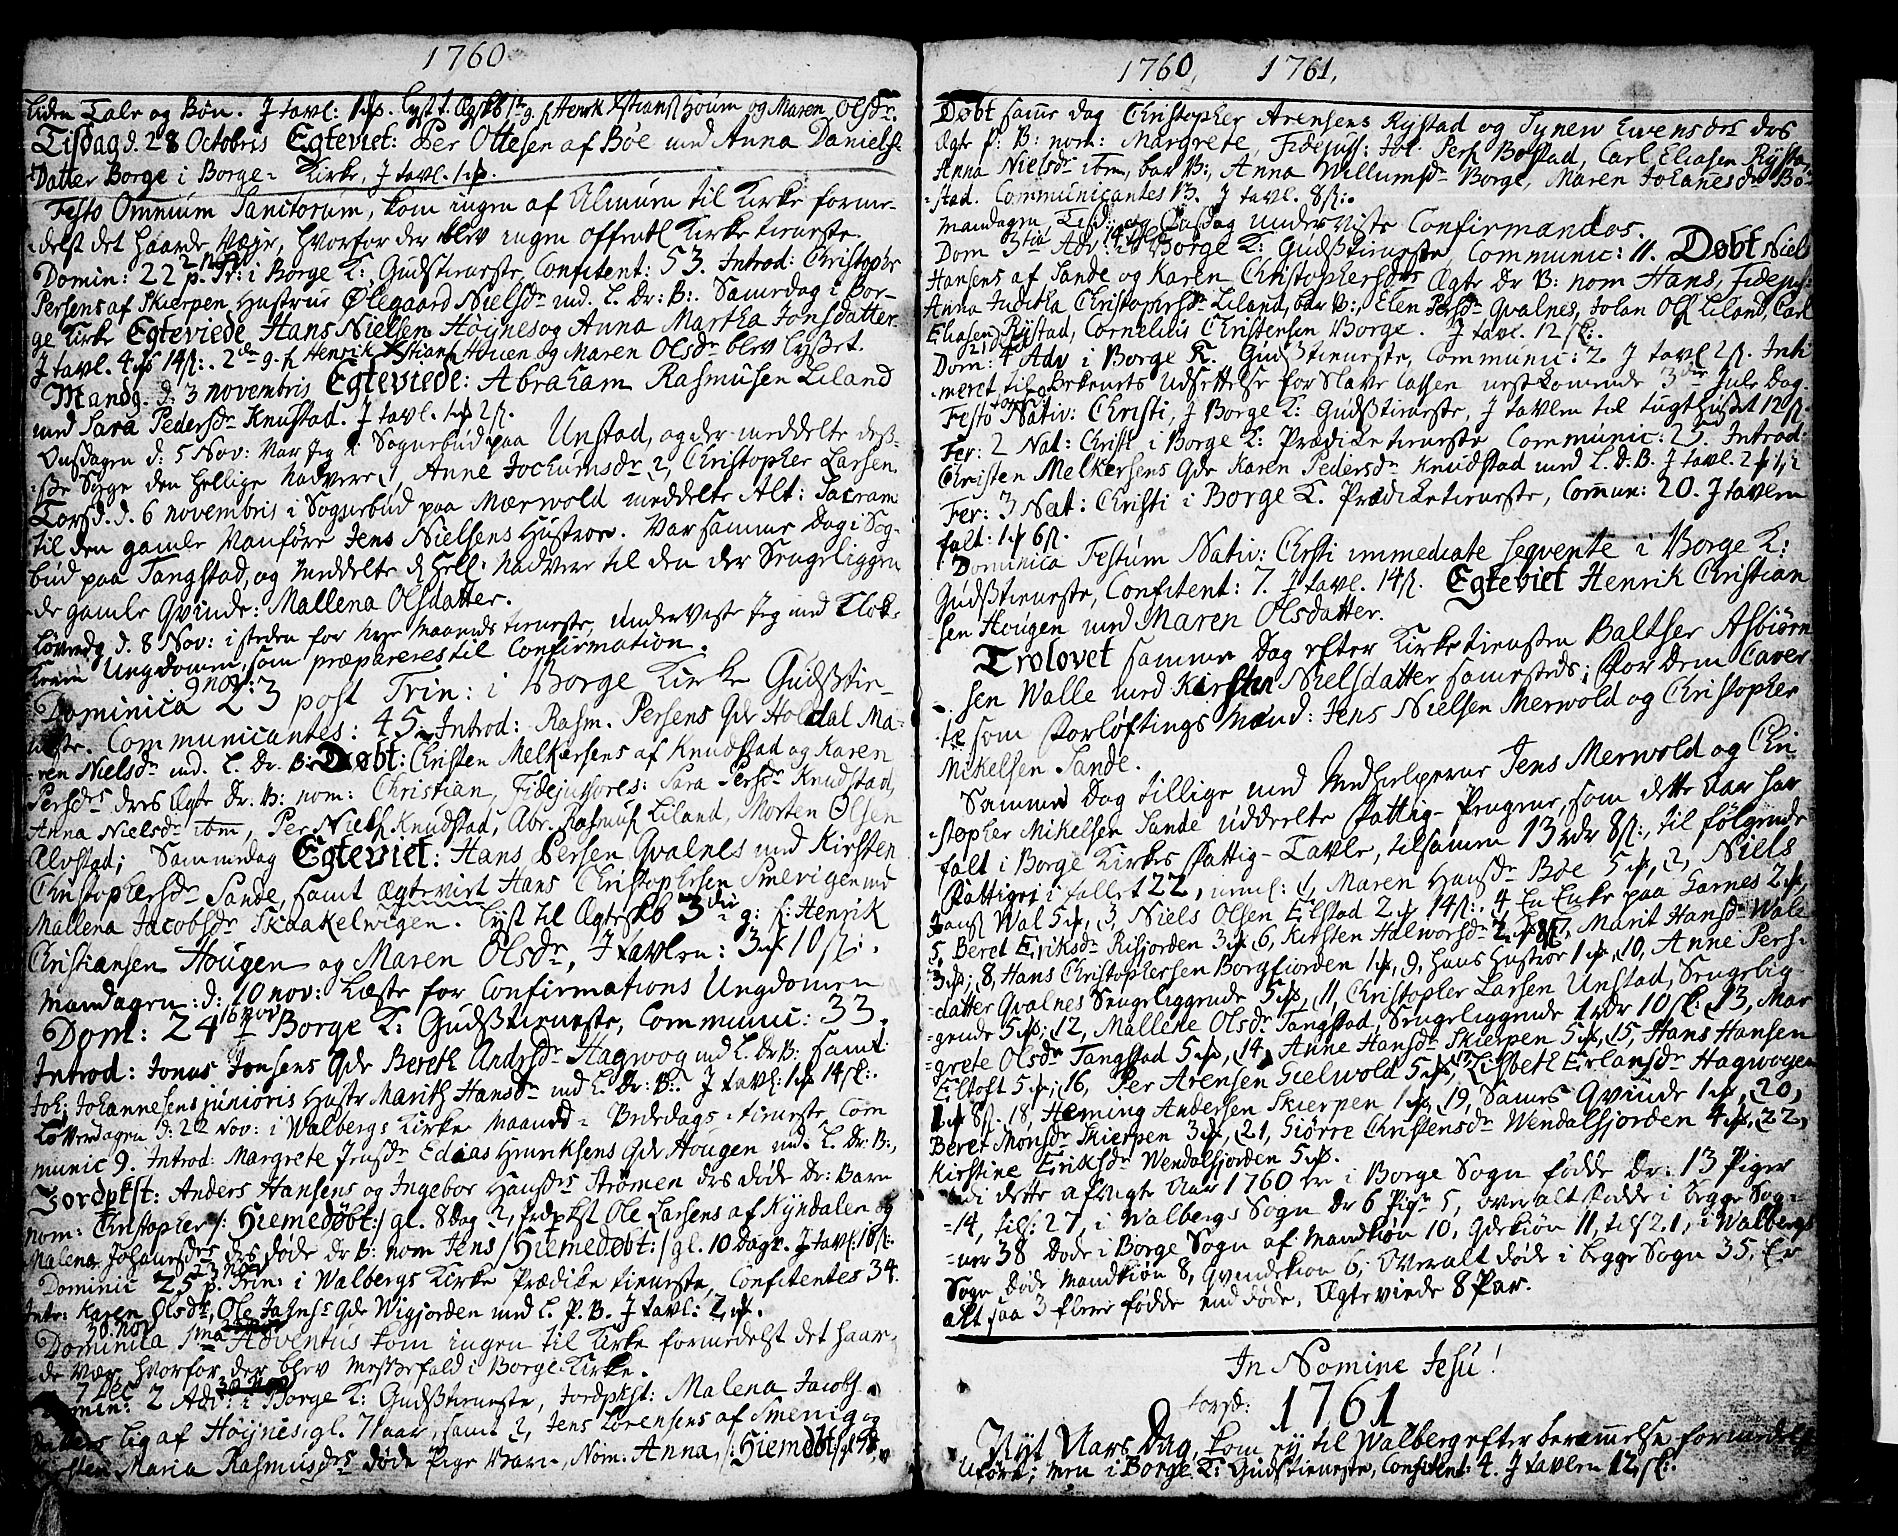 1760
liden Tale og Bøn. J tavl: 1 . lyst t. Ægtskb 1te g. f Henrik Christians Houm og Maren Olsdr.
Tisdag d. 28 Octobris Egteviet: Per Ottesen af Bøe med Anna Daniels-
Datter Borge i Borge Kirke, J tavl. 1 .
Festo Omnium Sanctorum, kom ingen af Almuen til Kirke forme-
delst det haarde Vejr, hvorfor der blev ingen offentl Kirke tieneste.
2 Nov
Domin: 22 p. Tr: i Borge K: Gudstieneste, Confitent: 53. Introd: Christopher
Persens af Skierpen Hustrue Ølegaard Nielsdr md. L. Dr: B:. Samedag i Bor-
ge Kirke Egteviede Hans Nielsen Høynes og Anna Martha Jonsdatter
J tavl. 4 14 . 2de g. f Henrik Christians Houen og Maren Olsdr blev lyset.
Mandg. d. 3 novembris Egteviede: Abraham Rasmusen Liland
med Sara Pedersdr Knustad. J tavl. 1 2 .
Onsdagen d: 5 Nov: Var Jeg i Sognebud paa Unstad, og der meddelte des-
se Syge den hellige Nadvere 1, Anne Jochumsdr 2, Christopher Larsen
Torsd. d. 6 novembris i Sognebud paa Mærwold meddelte Alt: Sacram
til den gamle Vanføre Jens Nielsens Hustroe. Var samme Dag i Sog-
bud paa Tangstad, og Meddelte d Hell. Nadvere til den der Sengeliggen
de gamle Qvinde: Mallena Olsdatter.
Løverdg d. 8 Nov: i steden for hver Maaneds tieneste, underviste Jeg med Klok-
keren Ungdommen, som præpareres til Confirmation.
9 nov:
Dominica 23 post Trin: i Borge Kirke Gudstie-
neste. Communicantes: 45. Introd: Rasm. Persens Qde Holdal Ma-
ren Nielsdr md. L. Dr. B: Døbt: Christen Melkersens af Knudstad og Karen
Persdrs dres Ægte Dr: B: nom: Christian, Fidejussores: Sara Persdr Knudstad,
Anna Nielsdr ibm, Per Niels Knudstad, Abr. Rasmus Liland, Morten Olsen
Alvstad; Sammedag Egteviet: Hans Persen Qvalnes med Kirsten
Christophersdr Sande, samt Ægteviet Hans Christophersen Smevigen md
Mallena Jacobsdr Skaakelwigen. lyst til Ægteskb 3die g: f: Henrik
Christiansen Hougen og Maren Olsdr, J tavlen: 3 10 .
Mandagen: d: 10 nov: Læste for Confirmations Ungdomen
16 nov
Dom: 24 i Borge K: Gudstieneste, Communic: 33.
Introd: Jonas Jonsens Qde Bereth Andrsdr Hagwog md L. Dr B: samt
Joh: Johannesens junioris Hustr Marith Hansdr md L. Dr: B:. J tavl: 1 14 .
Løverdagen d: 22 nov: i Walbergs Kirke Maaned- Bededags tieneste Com
munic 9. Introd: Margrete Jensdr Edias Henriksens Qde Hougen md. L. Dr. B:,
Jordpkst: Anders Hansens og Ingebor Hansdrs Strømen drs døde Dr: Barn
nom: Christopher /: Hiemedøbt:/ gl. 8 dag 2, Jordpkst Ole Larsens af Kyndalen og
Malena Johansdrs drs døde Dr B: nom Jens /:Hiemedøbt:/ gl. 10 Dage. J tavl: 16 :
23 nov
Dominic 25 p. Trin: i Walbergs Kirke Prædike tieneste, Confitentes 34.
Intr: Karen Olsdr, Ole Jahns Qde Wigjorden med L. P. B. J tavl: 2 .
30 nov
Dominica 1ma Adventus kom ingen til Kirke formedelst det haar-
de Vær, hvorfor der blev Messefald i Borge Kirke.
7 Dec
2 Adv: i Borge K: Gudstieneste, Jordpkst: Malena Jacobs
datters Lig af Høynes, gl. 7 Aar, samt 2, Jens Lorensens af Smevig og
Kirsten Maria Rasmusdrs døde Pige Barn, Nom: Anna, /: Hiemedøbt
1760, 1761,
Døbt same dag Christopher Arensens Rystad og Synew Ewensdrs drs
Ægte P: B: nom: Margrete, Fidejuss: Joh Pers Bostad, Carl Eliasen Rysta,
Anna Nielsdr ibm, bar B:, Anna Willumsdr Borge, Maren Johanesdr Bo-
stad. Communicantes 13. J tavl. 8 .
Mandagen, Tisd: og Onsdag underviste Confirmandos.
14 Dec
Dom 3tia Adv: i Borge K: Gudstieneste, Communic: 11. Døbt Niels
Hansens af Sande og Karen Christophersdrs Ægte Dr B: nom Hans, Fidejuss:
Anna Juditha Christophersdr Liland, bar B:, Elen Persdr Qvalnes, Johan Ols Liland, Carl
Eliasen Rystad, Cornelius Christensen Borge. J tavl. 12 .
21 Dec
Dom: 4 Adv i Borge K. Gudstieneste, Communic: 2. J tavl 2 . Inti
meret til Bekenets Udsettelse for Slave Cassen nestkomende 3die Jule Dag.
Festo Nativ: Christi, J Borge K: Gudstieneste, J tavlen til tugthuset 12 .
Fer: 2 Nat: Christi i Borge K: Prædiketieneste, Communic: 25. Introd:
Christen Melkersens Qde Karen Pedersdr Knudstad med L. D. B. J tavl. 2
Fer: 3 Nat: Christi i Borge K. Prædiketieneste, Comun: 20. J tavlen
falt: 1 6 .
Dominica Festum Nativ: Chrsti immediate seqvente i Borge K:
Gudstieneste, Confitent: 7. J tavl. 14 . Egteviet Henrik Christian
sen Hougen med Maren Olsdatter.
Trolovet samme Dag efter Kirketienesten Baltser Asbiørn
sen Walle med Kirsten Nielsdatter samesteds; For Dem Caver
te som Forløftings Mænd: Jens Nielsen Merwold og Christopher
Mikelsen Sande.
Samme Dag tillige med Medhielperne Jens Merwold og Chri
stopher Mikelsen Sande uddeelte Fattig- Pengene, som dette Aar har
falt i Borge Kirkes Fattig- Tavle, tilsamen 13 rdr 8 , til følgende
Fattiges i tallet 22, neml: 1, Maren Hansdr Bøe 5 , 2, Niels
Hans Wal 5 , 3, Niels Olsen Elstad 2 14 . 4 En Enke paa Garnes 2 ,
5, Beret Eriksdr Risfjorden 3 , 6, Kirsten Halworsdr 2 8 7, Marit Hansdr Wale
3 ; 8, Hans Christophersen Borgfiorden 1 , 9, hans Hustroe 1 , 10, Anne Pers-
datter Qvalnes Sengeliggende 5 , 11, Christopher Larsen Unstad, Sengelig-
gende 5 ; 12, Mallene Olsdr Tangstad, Sengeliggende 1 rdr 10 . 13, Mar
grete Olsdr Tangstad 5 , 14, Anne Hansdr Skierpen 5 , 15, Hans Hansen
Eltoft 5 ; 16, Per Arensen Gielwold 5 , 17 Lisbeth Erlansdr Hagwogen
1 8 . 18, Heming Andersen Skierpen 1 , 19, Sames Qvinde 1 , 20,
Beret Monsdr Skierpen 3 , 21, Giørre Christensdr Wendalsfjorden 4 , 22,
Kirstine Eriksdr Wendalsfjorden 5 .
I dette afvigte Aar 1760 er i Borge Sogn fødde Dr: 13 Piger
14, tils: 27, i Walbergs Sogn Dr 6 Pigr 5, over alt fødde i begge Sog-
ner 38 Døde i Borge Sogn af Mandkiøn 10, Qdekiøn 11, tils 21, i Walbergs
Sogn døde Mandkiøn 8, Qvindekiøn 6, Overalt døde i begge Sogn 35, Er
alt saa 3 flere fødde end døde. Ægteviede 8 Par.
In Nomine Jesu!
torsd: 1761
Nyt Aars Dag, kom ej til Walberg efter berammelse formedelst
Uføre; men i Borge K: Gudstieneste, Confitent: 4. J tavlen 12 .